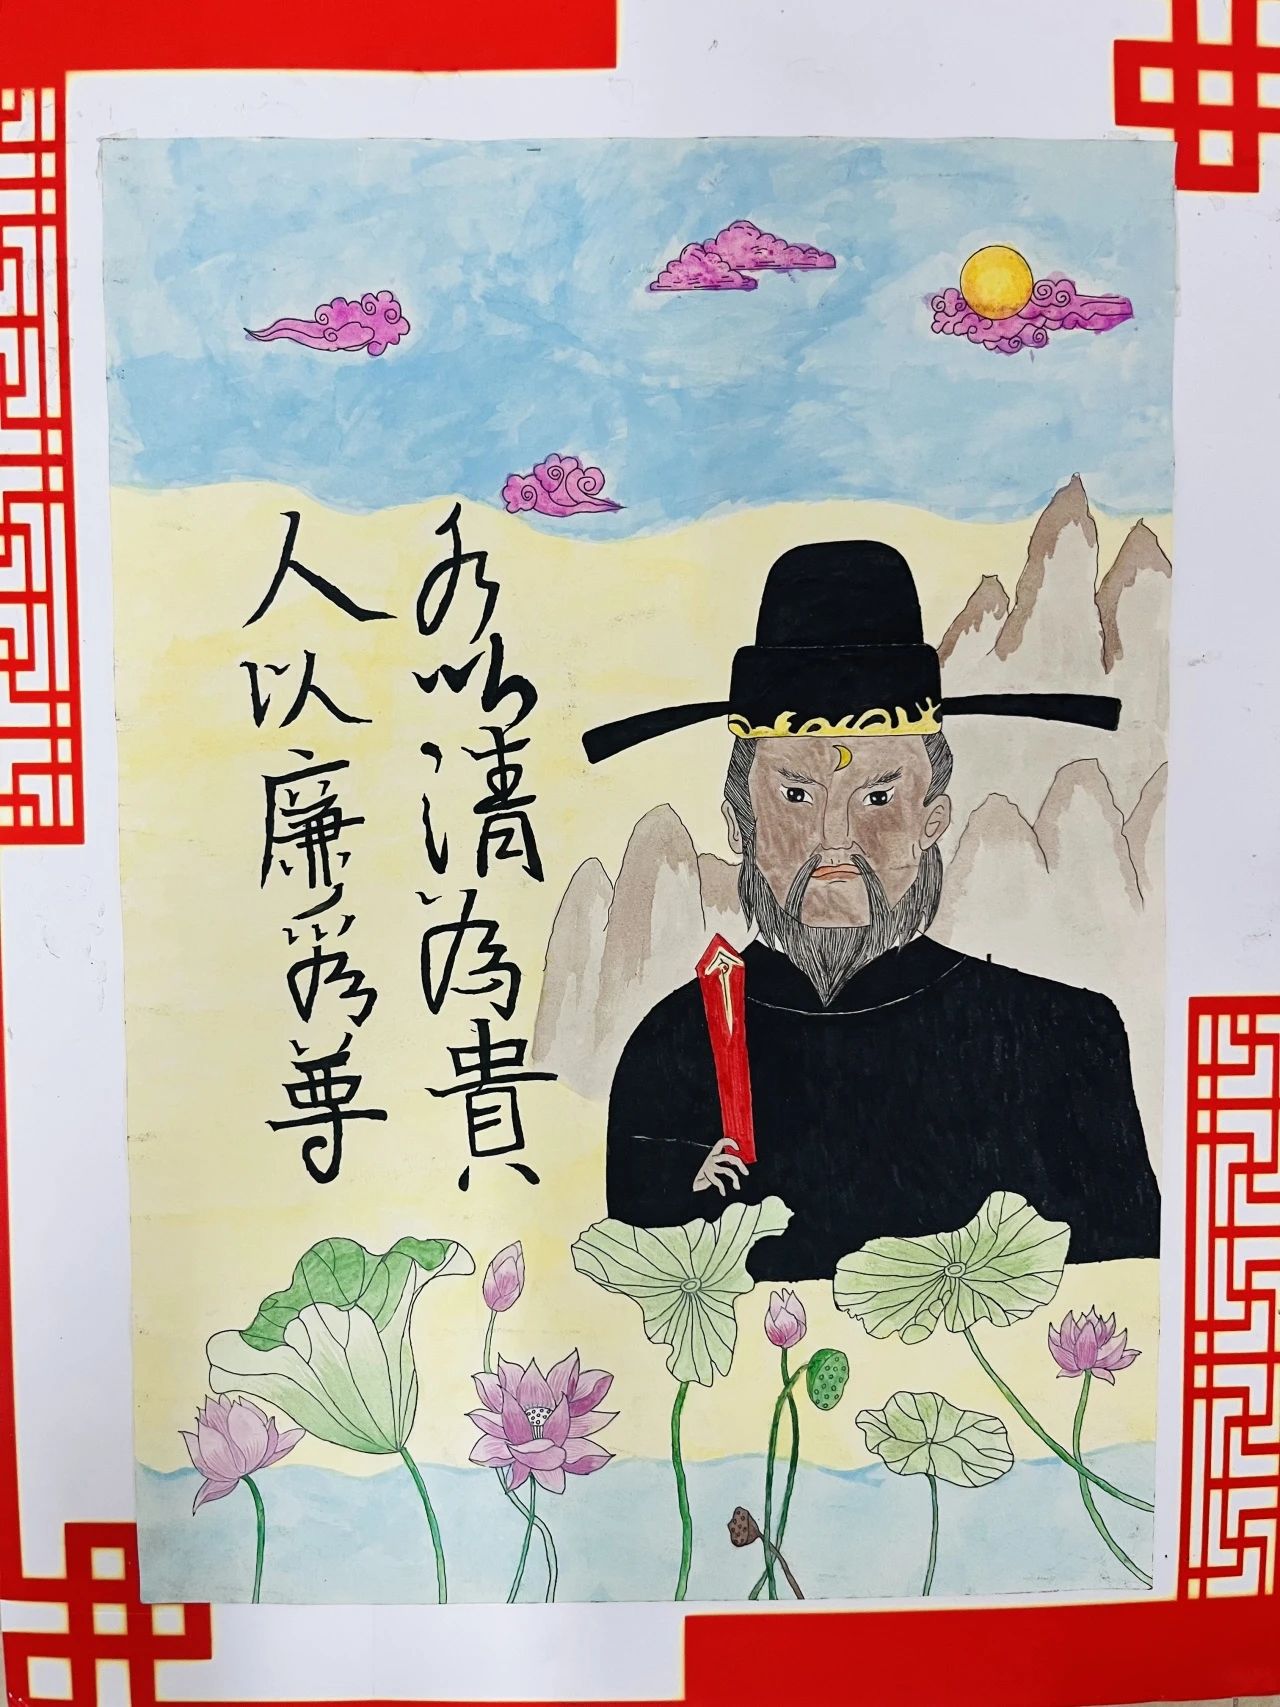 水以清為貴
人以廉为尊